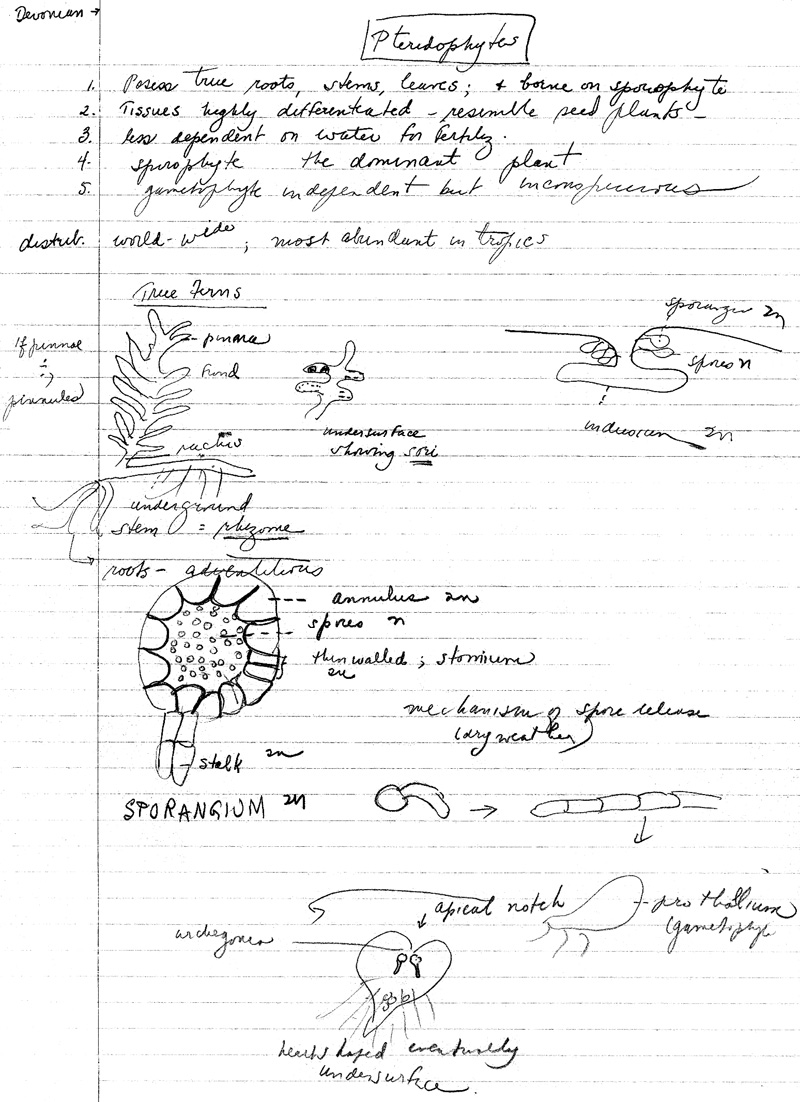 Devonian →
Pteridophytes
1. Posess true roots, stems, leaves; + borne on sporophyte
2. Tissues highly differentiated - resemble seed plants -
3. less dependent on water for fertiliz.
4. sporophyte the dominant plant
5. gametophyte independent but inconspicuous
distrib. world-wide; most abundant in tropics
True Ferns
pinna
frond
If pinnae
÷ →
pinnules
rachis
undersurface
showing sori
sporangia 2n
spores n
indusium 2n
underground
stem = rhizome
roots - adventitious
annulus 2n
spores n
thin walled; stomium
2n
stalk 2n
SPORANGIUM 2n
mechanism of spore release
(dry weather)
→
apical notch
prothallium
(gametophyte
archegonia
heartshaped eventually
undersurface.